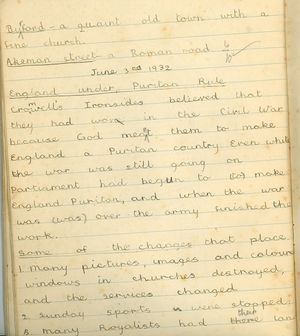 Byford - a quaint old town with a
fine church.
Akeman street - a Roman road. 6/10
June 3rd 1932
England under Puritan Rule
Cromwell's Ironsides believed that
they had won in the Civil War
because God meant them to make
England a Puritan country. Even while
the war was still going on
Parliament had begun to (to) make
England Puritan, and when the war
was (was) over the army finished the
work.
Some of the changes that place.
1. Many pictures, images and colour
windows in churches destroyed,
and the services changed
2. Sunday sports were stopped.
3. Many Royalists had their